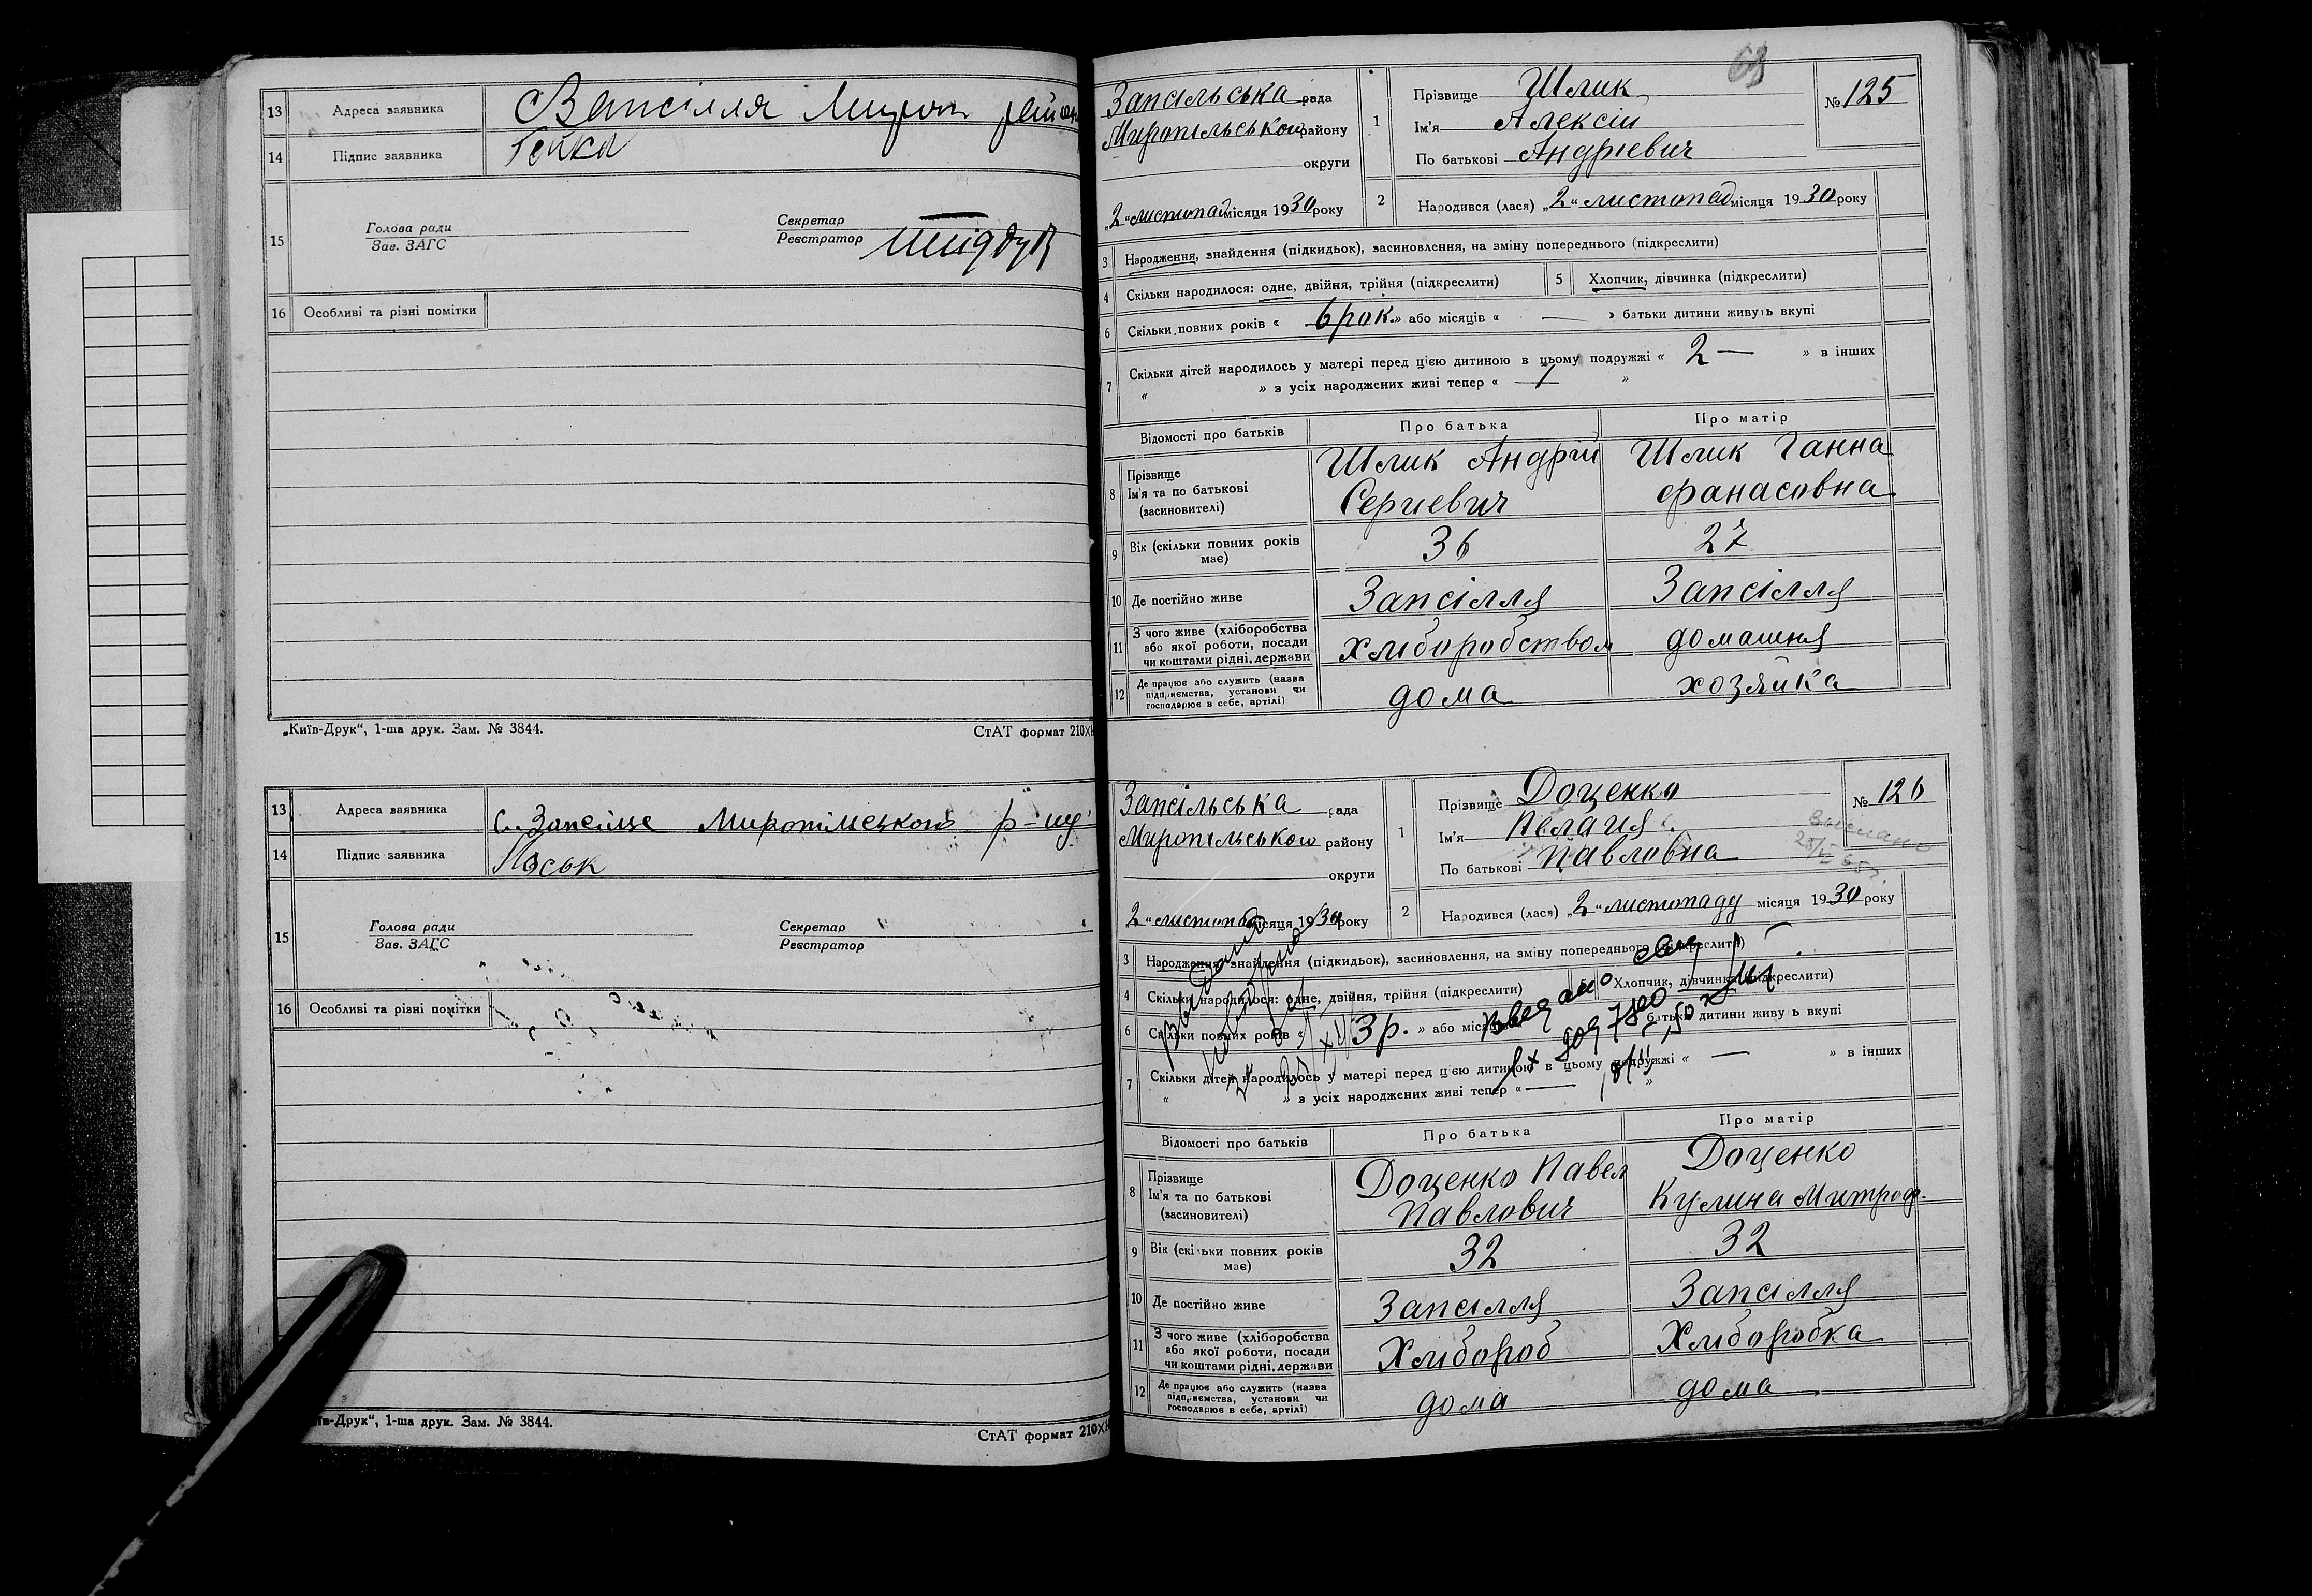 13 Адреса заявника Запсілля Мироп район
14 Підпис заявника
15 Голова ради Секретар
Зав. ЗАГС Реєстратор
16 Особливі та різні помітки
„Київ-Друк“, 1-ша друк. Зам. № 3844. СтАТ формат 210×
13 Адреса заявника с. Запсілле Миропільського р-ну
14 Підпис заявника
15 Голова ради Секретар
Зав. ЗАГС Реєстратор
16 Особливі та різні помітки
ів-Друк“, 1-ша друк. Зам. № 3844. СтАТ формат 210×
69
Запсільська рада
Миропільського району
округи
„2“ листопад місяця 1930 року
1 Прізвище Шлик
Ім'я Алексій
По батькові Андрієвич
№ 125
2 Народився (лася) „2“ листопад місяця 1930 року
3 Народження, знайдення (підкидьок), засиновлення, на зміну попереднього (підкреслити)
4 Скільки народилося: одне, двійня, трійня (підкреслити) 5 Хлопчик, дівчинка (підкреслити)
6 Скільки повних років « 6 рок. » або місяців « — » батьки дитини живуть вкупі
7 Скільки дітей народилось у матері перед цією дитиною в цьому подружжі « 2 — » в інших
« » з усіх народжених живі тепер « »
Відомості про батьків Про батька Про матір
8 Прізвище
Ім'я та по батькові
(засиновителі)
Шлик Андрій
Сергієвич
Шлик Ганна
Фанасовна
9 Вік (скільки повних років має) 36 27
10 Де постійно живе Запсілля Запсілля
11 З чого живе (хліборобства
або якої роботи, посади
чи коштами рідні, держави
хліборобством домашня
12 Де працює або служить (назва
підприємства, установи чи
господарює в себе, артілі)
дома хозяйка
Запсільська рада
Миропільського району
округи
„2“ листопад місяця 1930 року
1 Прізвище Доценко
Ім'я
По батькові Павловна
№ 126
2 Народився (лася) „2“ листопаду місяця 1930 року
3 Народження, знайдення (підкидьок), засиновлення, на зміну попереднього (підкреслити)
4 Скільки народилося: одне, двійня, трійня (підкреслити) Хлопчик, дівчинка (підкреслити)
6 Скільки повних років « 3 р. » або місяців батьки дитини живуть вкупі
7 Скільки дітей народилось у матері перед цією дитиною в цьому подружжі « — » в інших
« » з усіх народжених живі тепер « — »
Відомості про батьків Про батька Про матір
8 Прізвище
Ім'я та по батькові
(засиновителі)
Доценко Павел
Павлович
Доценко
Кулина Митроф.
9 Вік (скільки повних років має) 32 32
10 Де постійно живе Запсілля Запсілля
11 З чого живе (хліборобства
або якої роботи, посади
чи коштами рідні, держави
Хлібороб Хліборобка
12 Де працює або служить (назва
підприємства, установи чи
господарює в себе, артілі)
дома дома